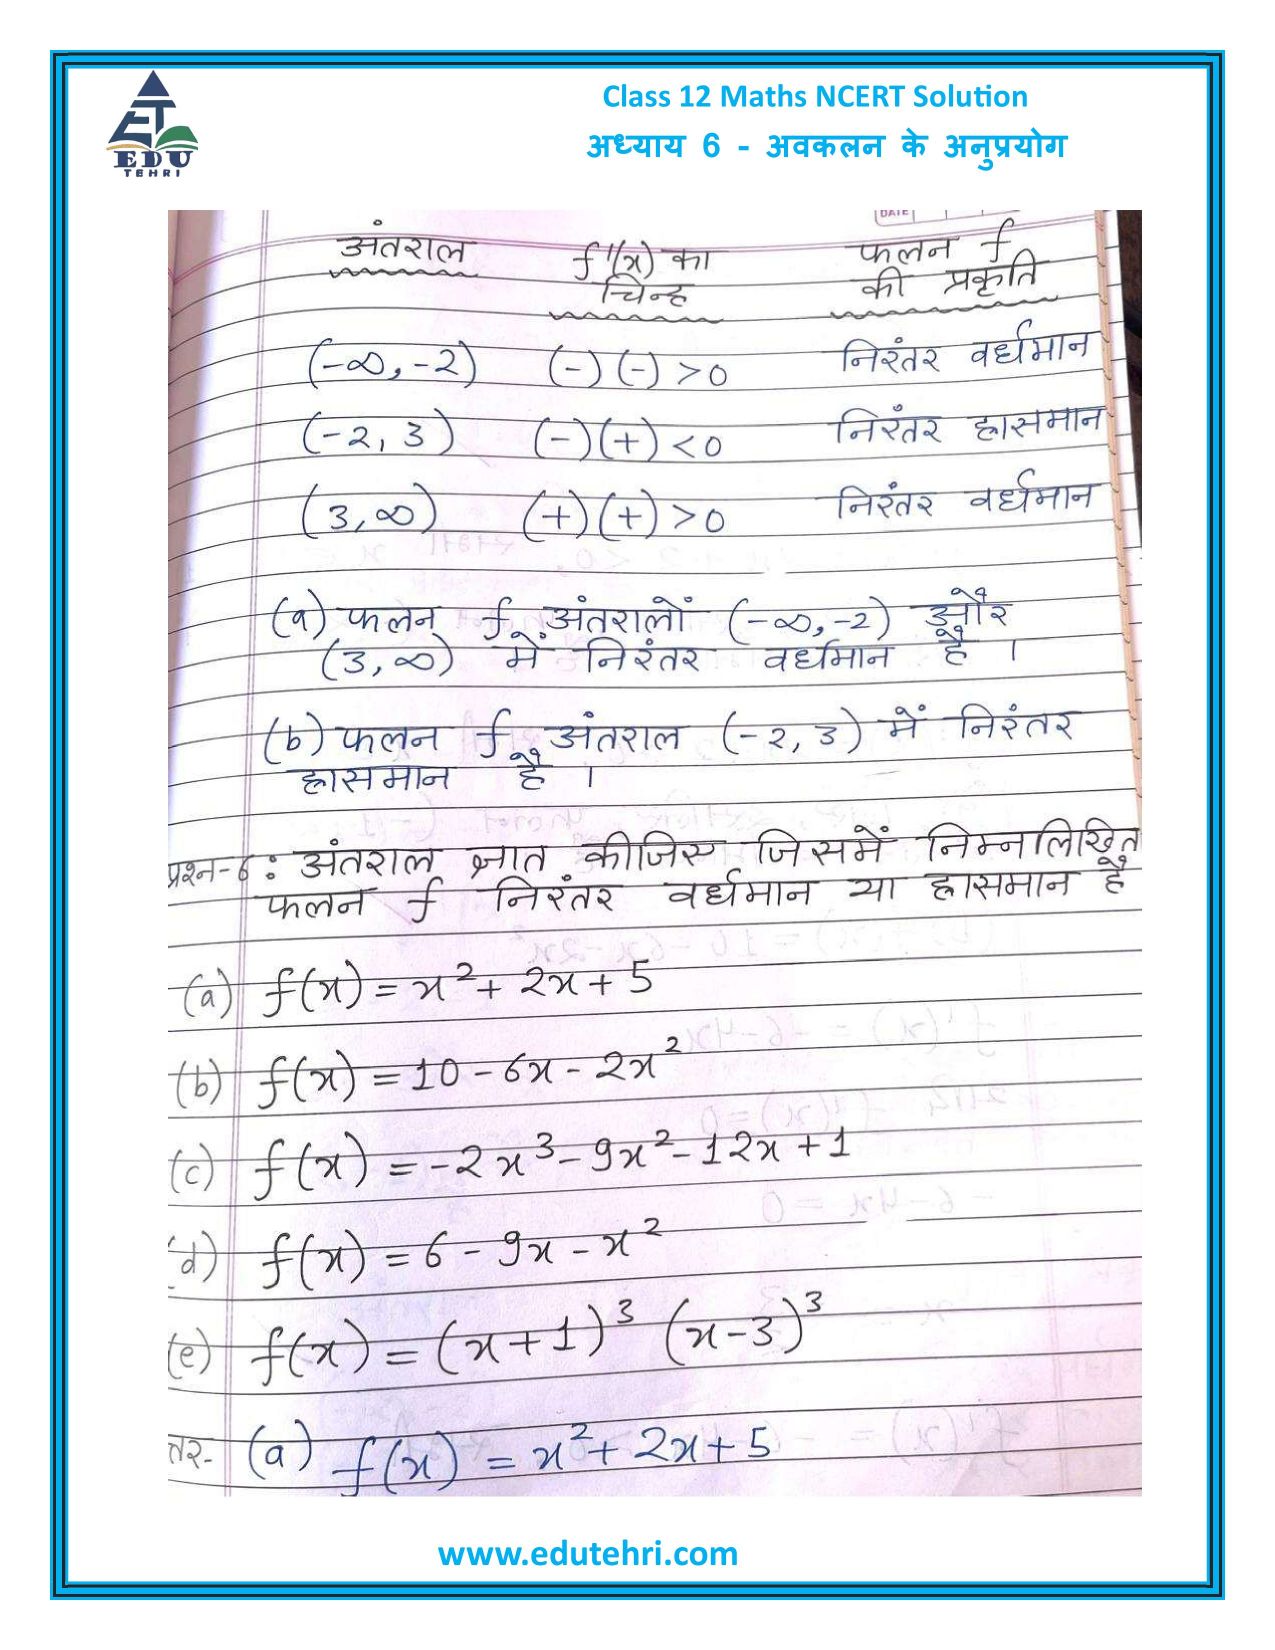 ET
EDU
TEHRI
Class 12 Maths NCERT Solution
अध्याय 6 - अवकलन के अनुप्रयोग
DATE
अंतराल f'(x) का चिन्ह फलन f की प्रकृति
(-∞, -2) (-)(-) >0 निरंतर वर्धमान
(-2, 3) (-)(+) <0 निरंतर ह्रासमान
(3, ∞) (+)(+) >0 निरंतर वर्धमान
(a) फलन f, अंतरालों (-∞, -2) और
(3, ∞) में निरंतर वर्धमान है ।
(b) फलन f, अंतराल (-2, 3) में निरंतर
ह्रासमान है ।
प्रश्न-6: अंतराल ज्ञात कीजिए जिसमें निम्नलिखित
फलन f निरंतर वर्धमान या ह्रासमान है
(a) f(x) = x² + 2x + 5
(b) f(x) = 10 - 6x - 2x²
(c) f(x) = -2x³ - 9x² - 12x + 1
(d) f(x) = 6 - 9x - x²
(e) f(x) = (x+1)³ (x-3)³
तर- (a) f(x) = x² + 2x + 5
www.edutehri.com